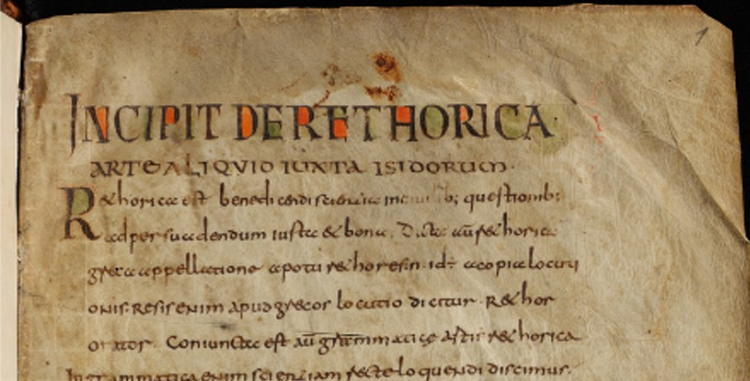 INCIPIT DE RETHORICA
ARTE ALIQVID IUXTA ISIDORUM·
Rethorica est benedicendi scientia in b; questionib;
ad persuadendum iusta & bona. Dicta aū rethorica
greca appellatione apo tu rethoresin. id÷ a copia locuti
onis. Resis enim apud grecos locutio dicitur. Rethor
orator. Coniuncta est aū grāmmatice artis rethorica
In grammatica enim scientiam recte loquendi discimus.
1